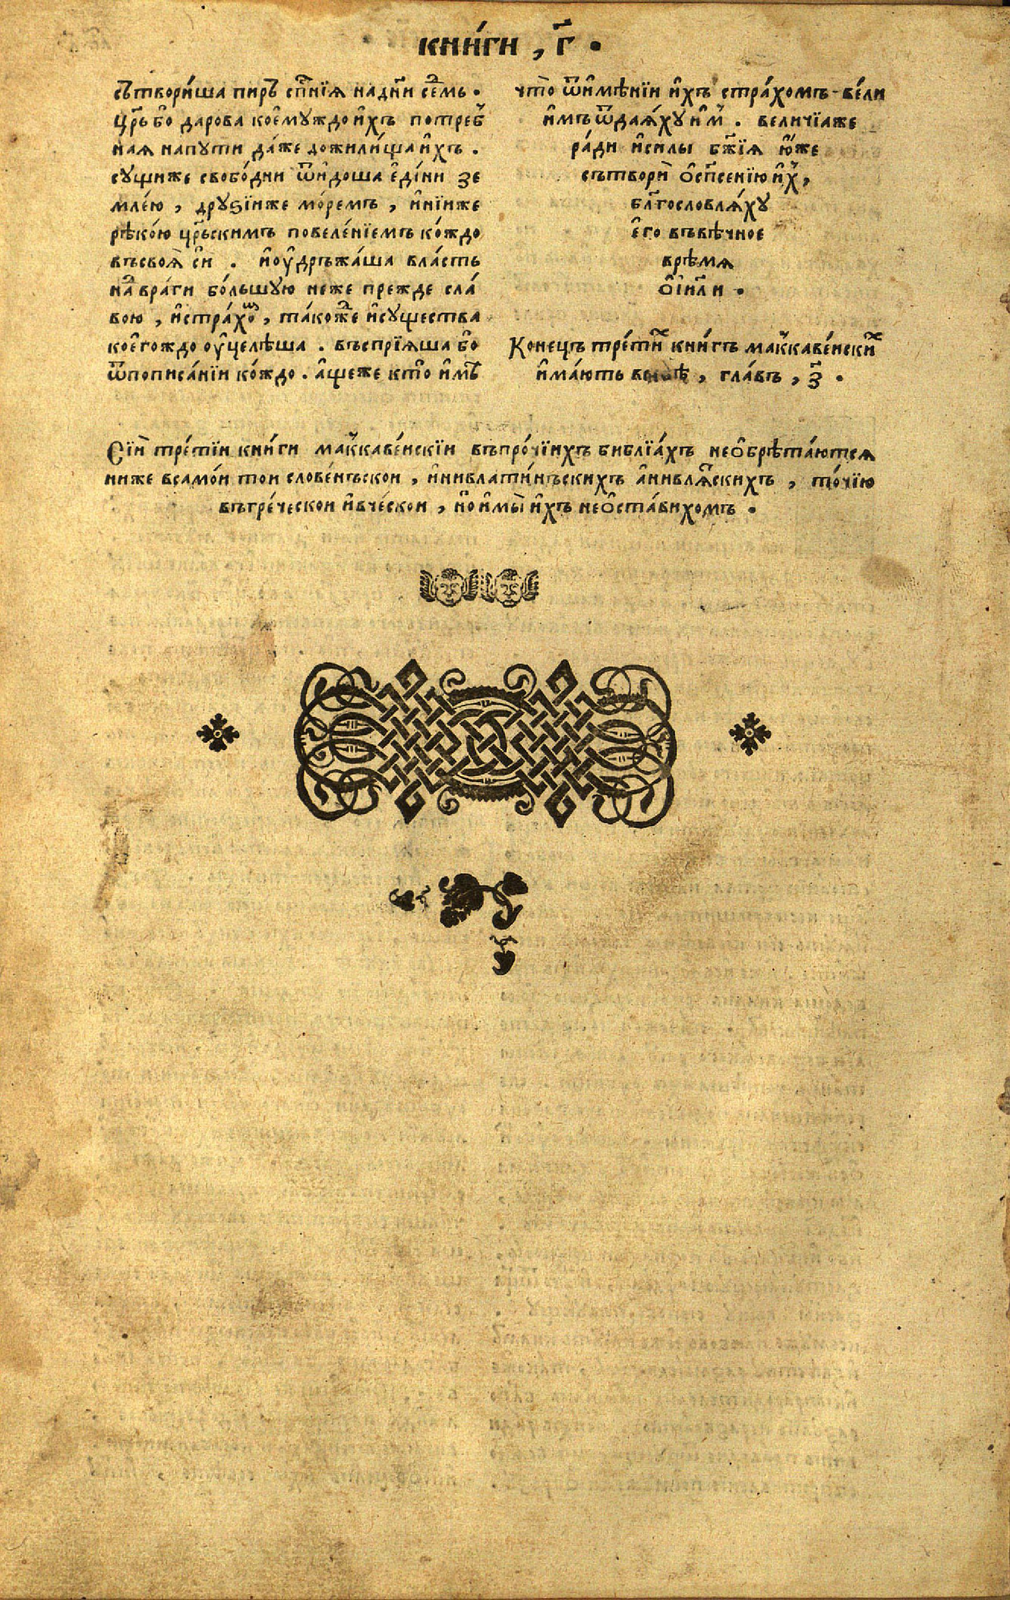 книги , г҃ .
сътвори́ша пиръ сп҃нїѧ на дн҃и се́мь .
цр҃ь бо дарова коему́ждо и҆хъ потре́б
наѧ напути да́же до жили́ща и҆хъ .
сущиже свобо́дни ѿидоша е҆ди́ни зе
мле́ю , друѕїиже мо́ремъ , и҆нїиже
рѣко́ю цр҃ьскимъ повеле́нїемъ ко́ждо
въ своѧ̀ си . и҆ ѹ҆дръжа́ша вла́сть
на враги бо́льшую неже прежде сла́
вою , и҆ стра́хѡ , та́коже и҆ существа
коего́ждо ѹ҆целѣша . въспрїѧша бо
ѿ пописа́нїи ко́ждо . а҆щеже кто̀ и҆мѣ
что̀ ѿ и҆мѣнїи и҆хъ стра́хомъ вели
и҆мъ ѿдаѧ́ху и҆м . вели́чїаже
ра́ди и҆ си́лы бж҃їѧ ю҆же
сътвори̂ ѻ҆ сп҃сенїю и҆х ,
бл҃гословлѧ́ху
е҆го въ вѣчное
врѣмѧ
ѻ҆ и҆ли .
Коне́цъ тре́тїи кни́гъ макъкаве́искїи
и҆ма́ють , гла́въ , з҃ .
Сїѝ тре́тїи кни́ги маккаве́искїи въ про́чїихъ библїа́хъ не ѻ҆брѣта́ютсѧ
ниже в само́и тои слове́нъскои , и҆ ни в лати́нъскихъ а҆ ни в лѧ́скихъ , то́чїю
въ гре́ческои и҆ в че́скои , но и҆ мы̀ и҆хъ не ѻ҆ста́вихомъ .